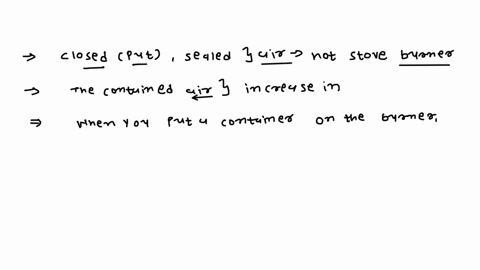 → closed (put), sealed } air → not stove burner
→ The contained air } increase in
⇒ when you put a container on the burner,